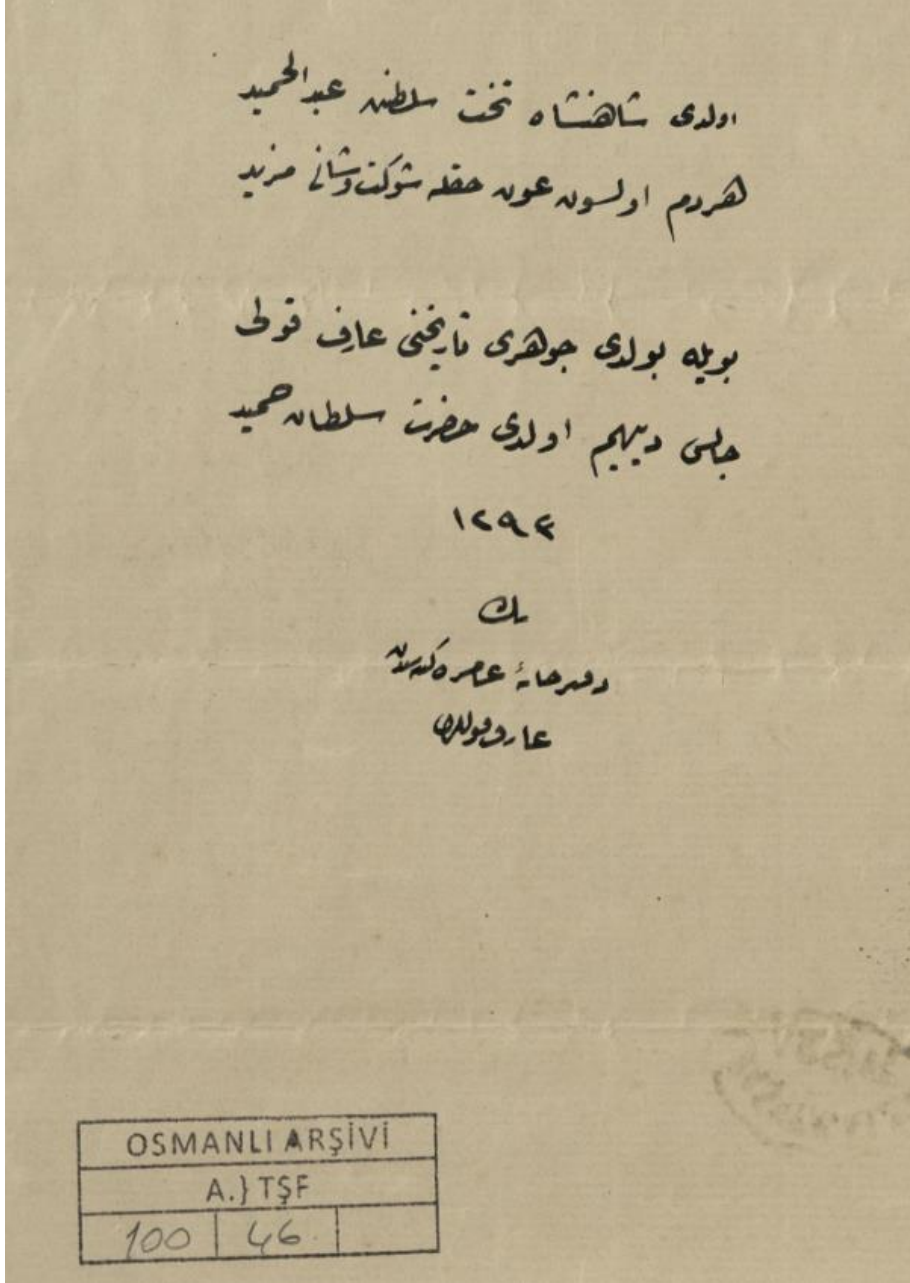 اولدى شاهنشاه تخت سلطنه عبدالحميد
هردم اولسون عون حقله شوكت وشانى مزيد
بويله بولدى جوهرى تاريخنى عارف قولى
جالس ديهيم اولدى حضرت سلطان حميد
١٢٩٣
بك
عارف قوللرى
OSMANLI ARŞİVİ
A.} TŞF
100 46